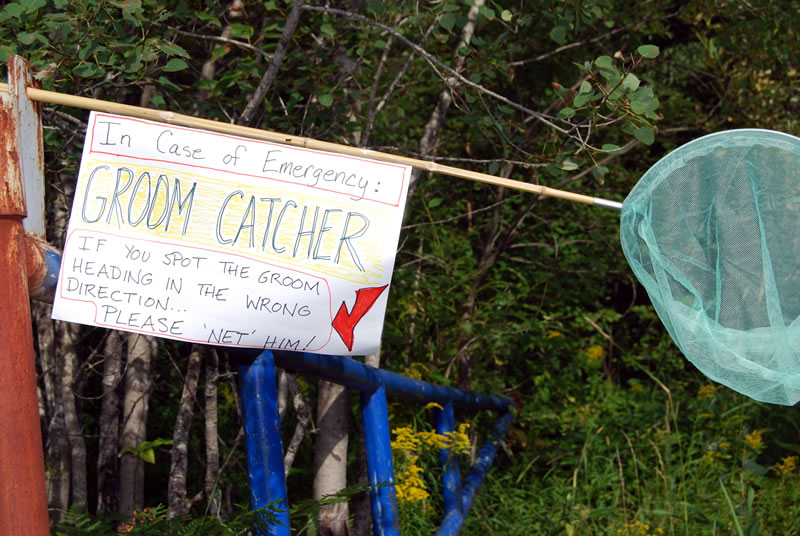 In Case of Emergency:
GROOM CATCHER
IF YOU SPOT THE GROOM
HEADING IN THE WRONG
DIRECTION...
PLEASE 'NET' HIM!